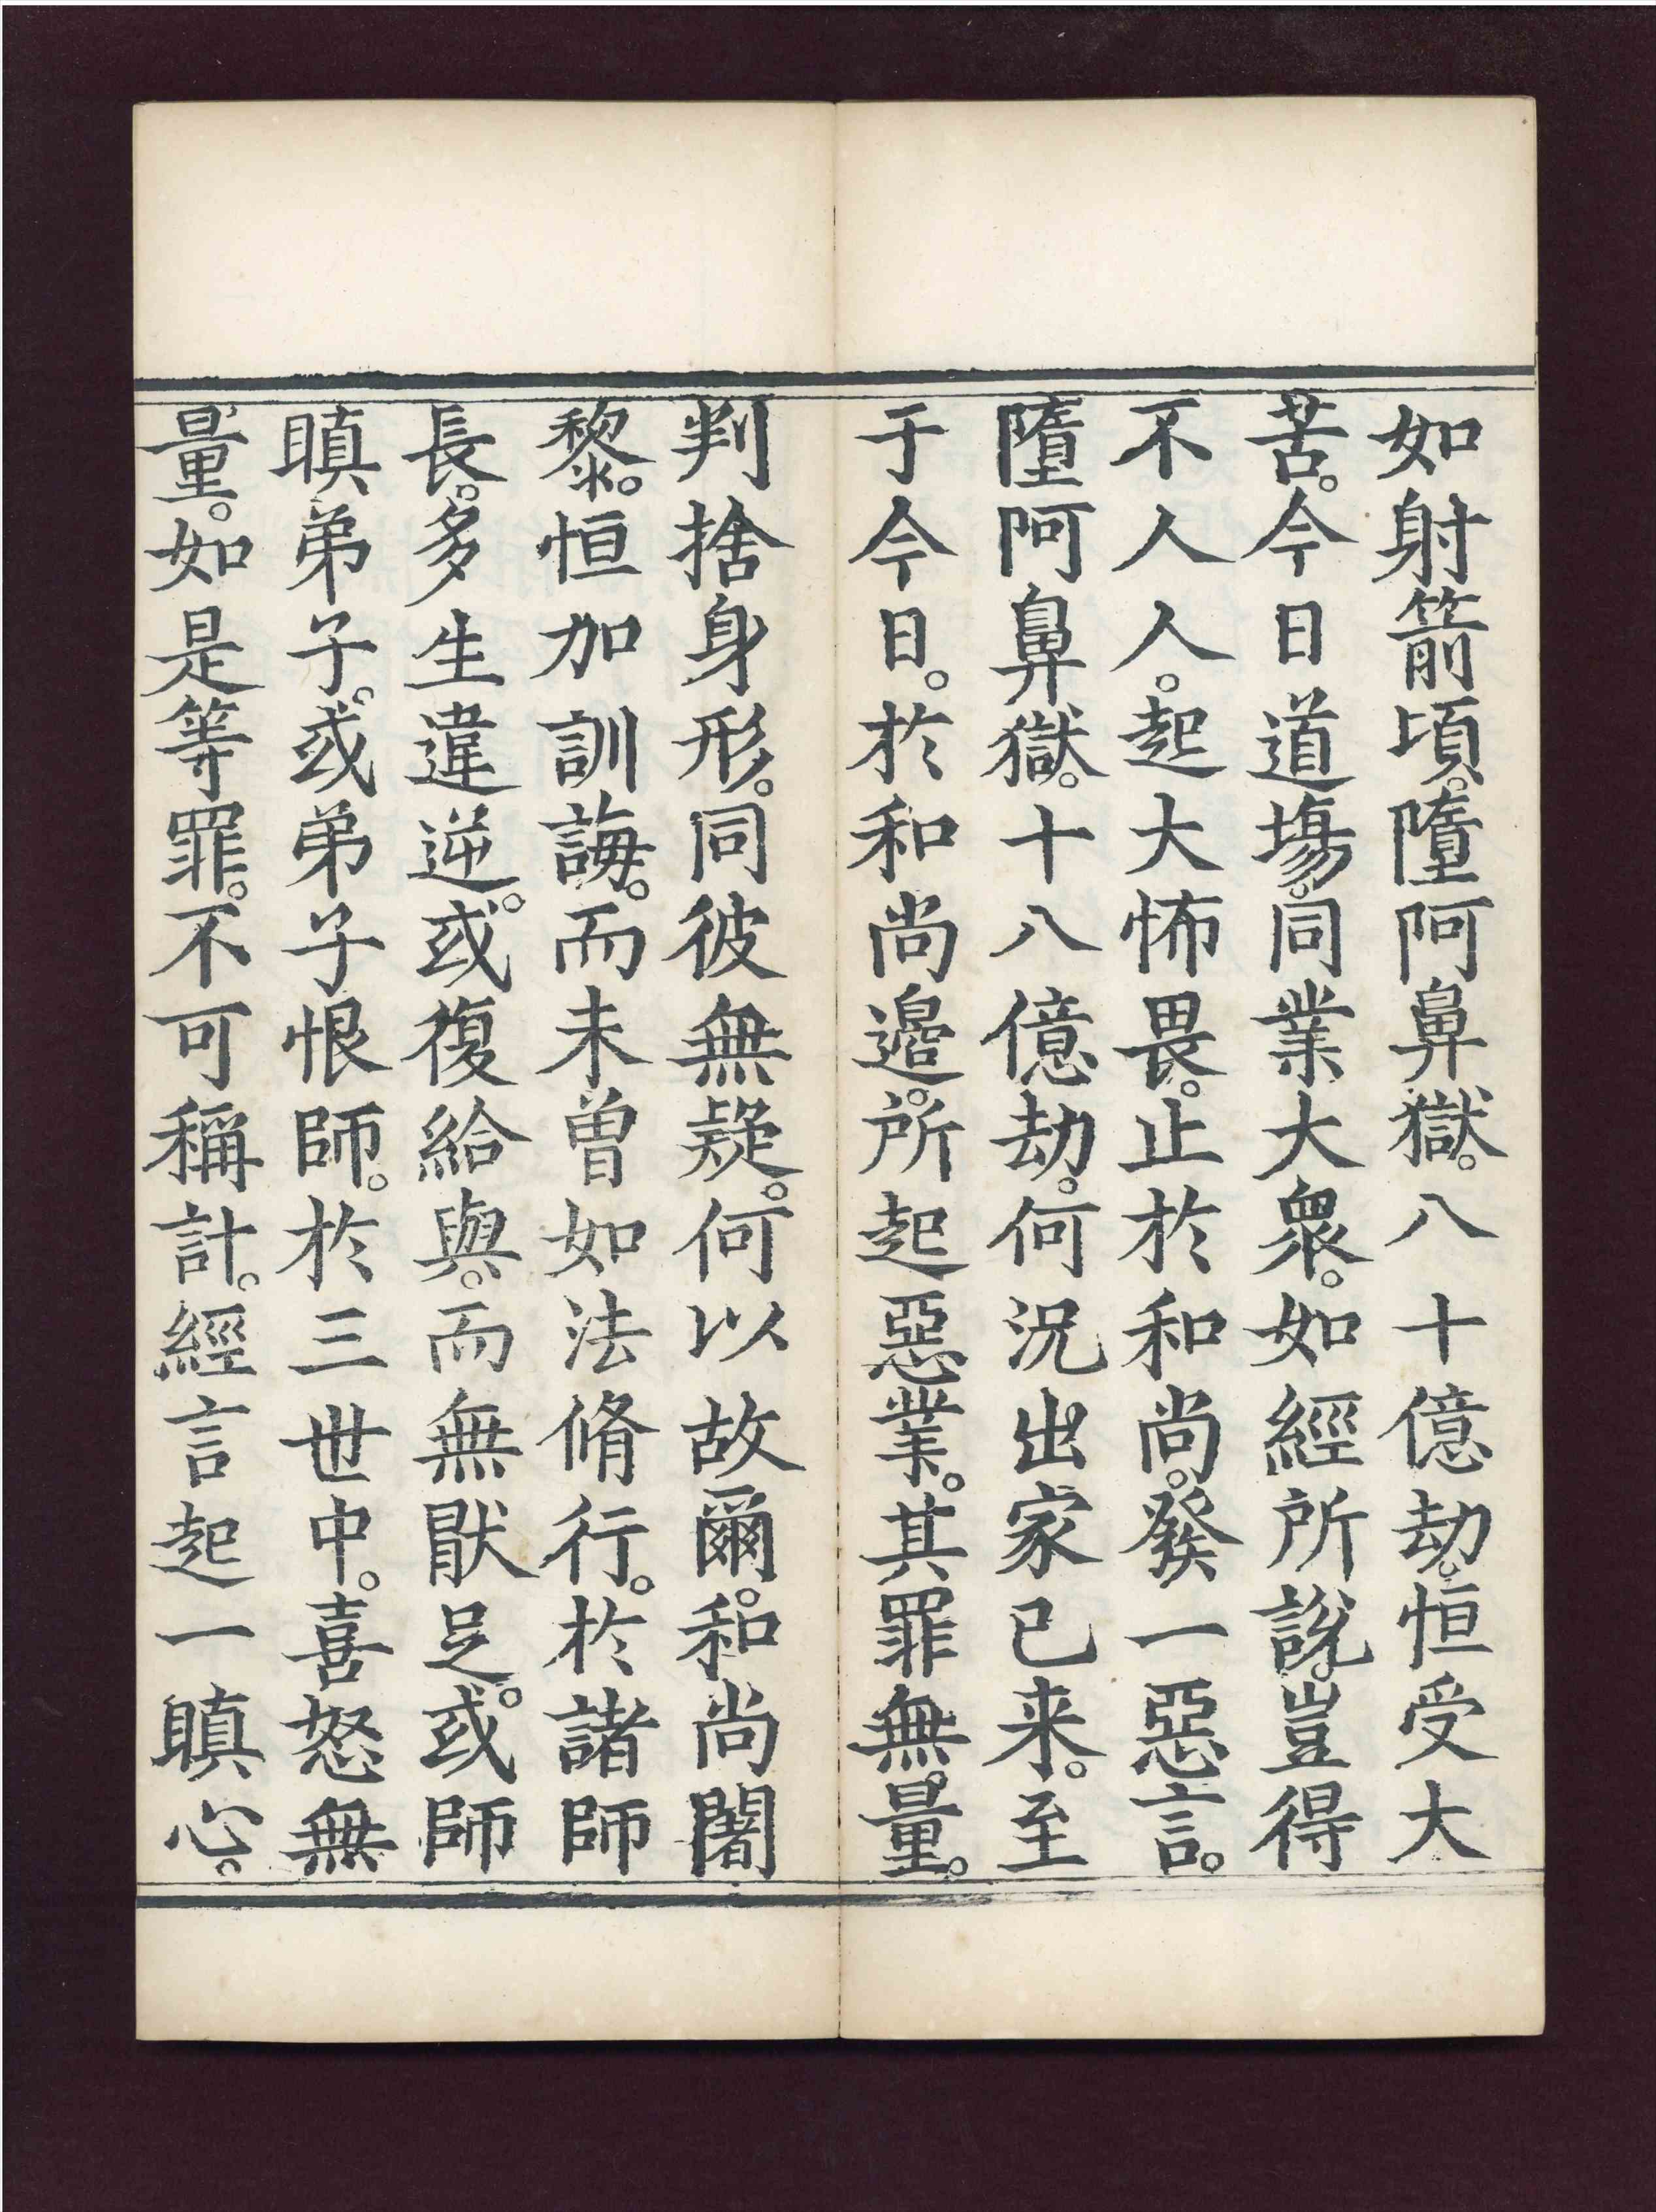 如射箭頃。墮阿鼻獄。八十億劫。恒受大
苦。今日道場。同業大衆。如經所說。豈得
不人人。起大怖畏。止於和尚。發一惡言。
墮阿鼻獄。十八億劫。何況出家已来。至
于今日。於和尚邊。所起惡業。其罪無。量。
判捨身形。同彼無疑。何以故爾。和尚闍
黎。恒加訓誨。而未曽如法脩行。於諸師
長。多生違逆。或復給與。而無猒足。或師
瞋弟子。或弟子恨師。於三世中。喜怒無
量。如是等罪。不可稱計。經言起一瞋心。